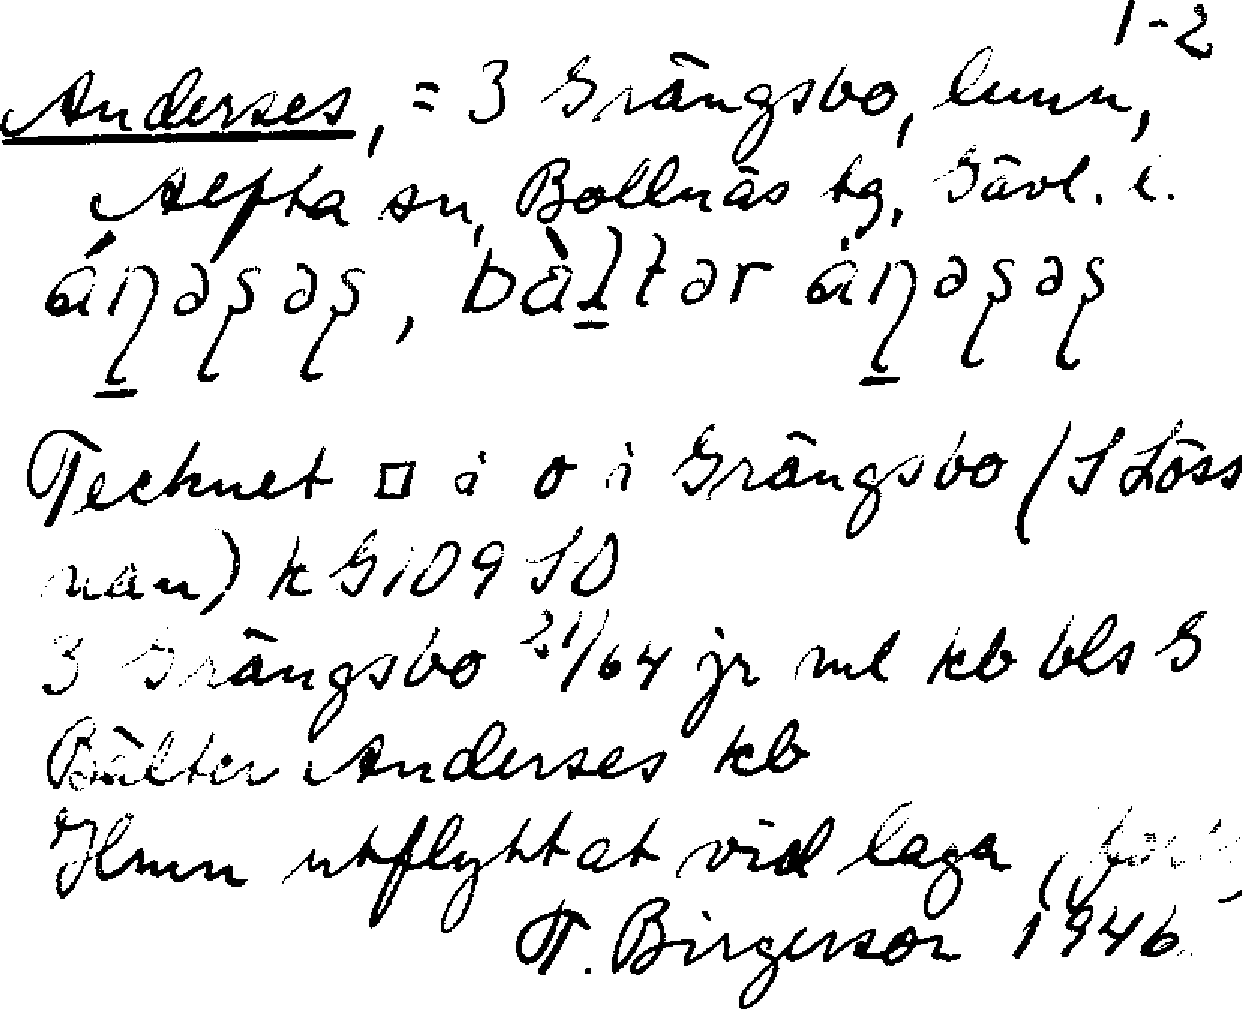 1-2
Anderses, = 3 Grängsbo, hmn,
Alfta sn, Bollnäs tg, Gävl. l.
áṇəṣəṣ, bàltər ȧṇəṣəṣ
Tecknet □ i o i Grängsbo (S Löss
nan) k G109 SO
3 Grängsbo 21/64 jr ml kb bls G
Bälter Anderses kb
Hmn utflyttat vid laga
T. Birgerson 1946